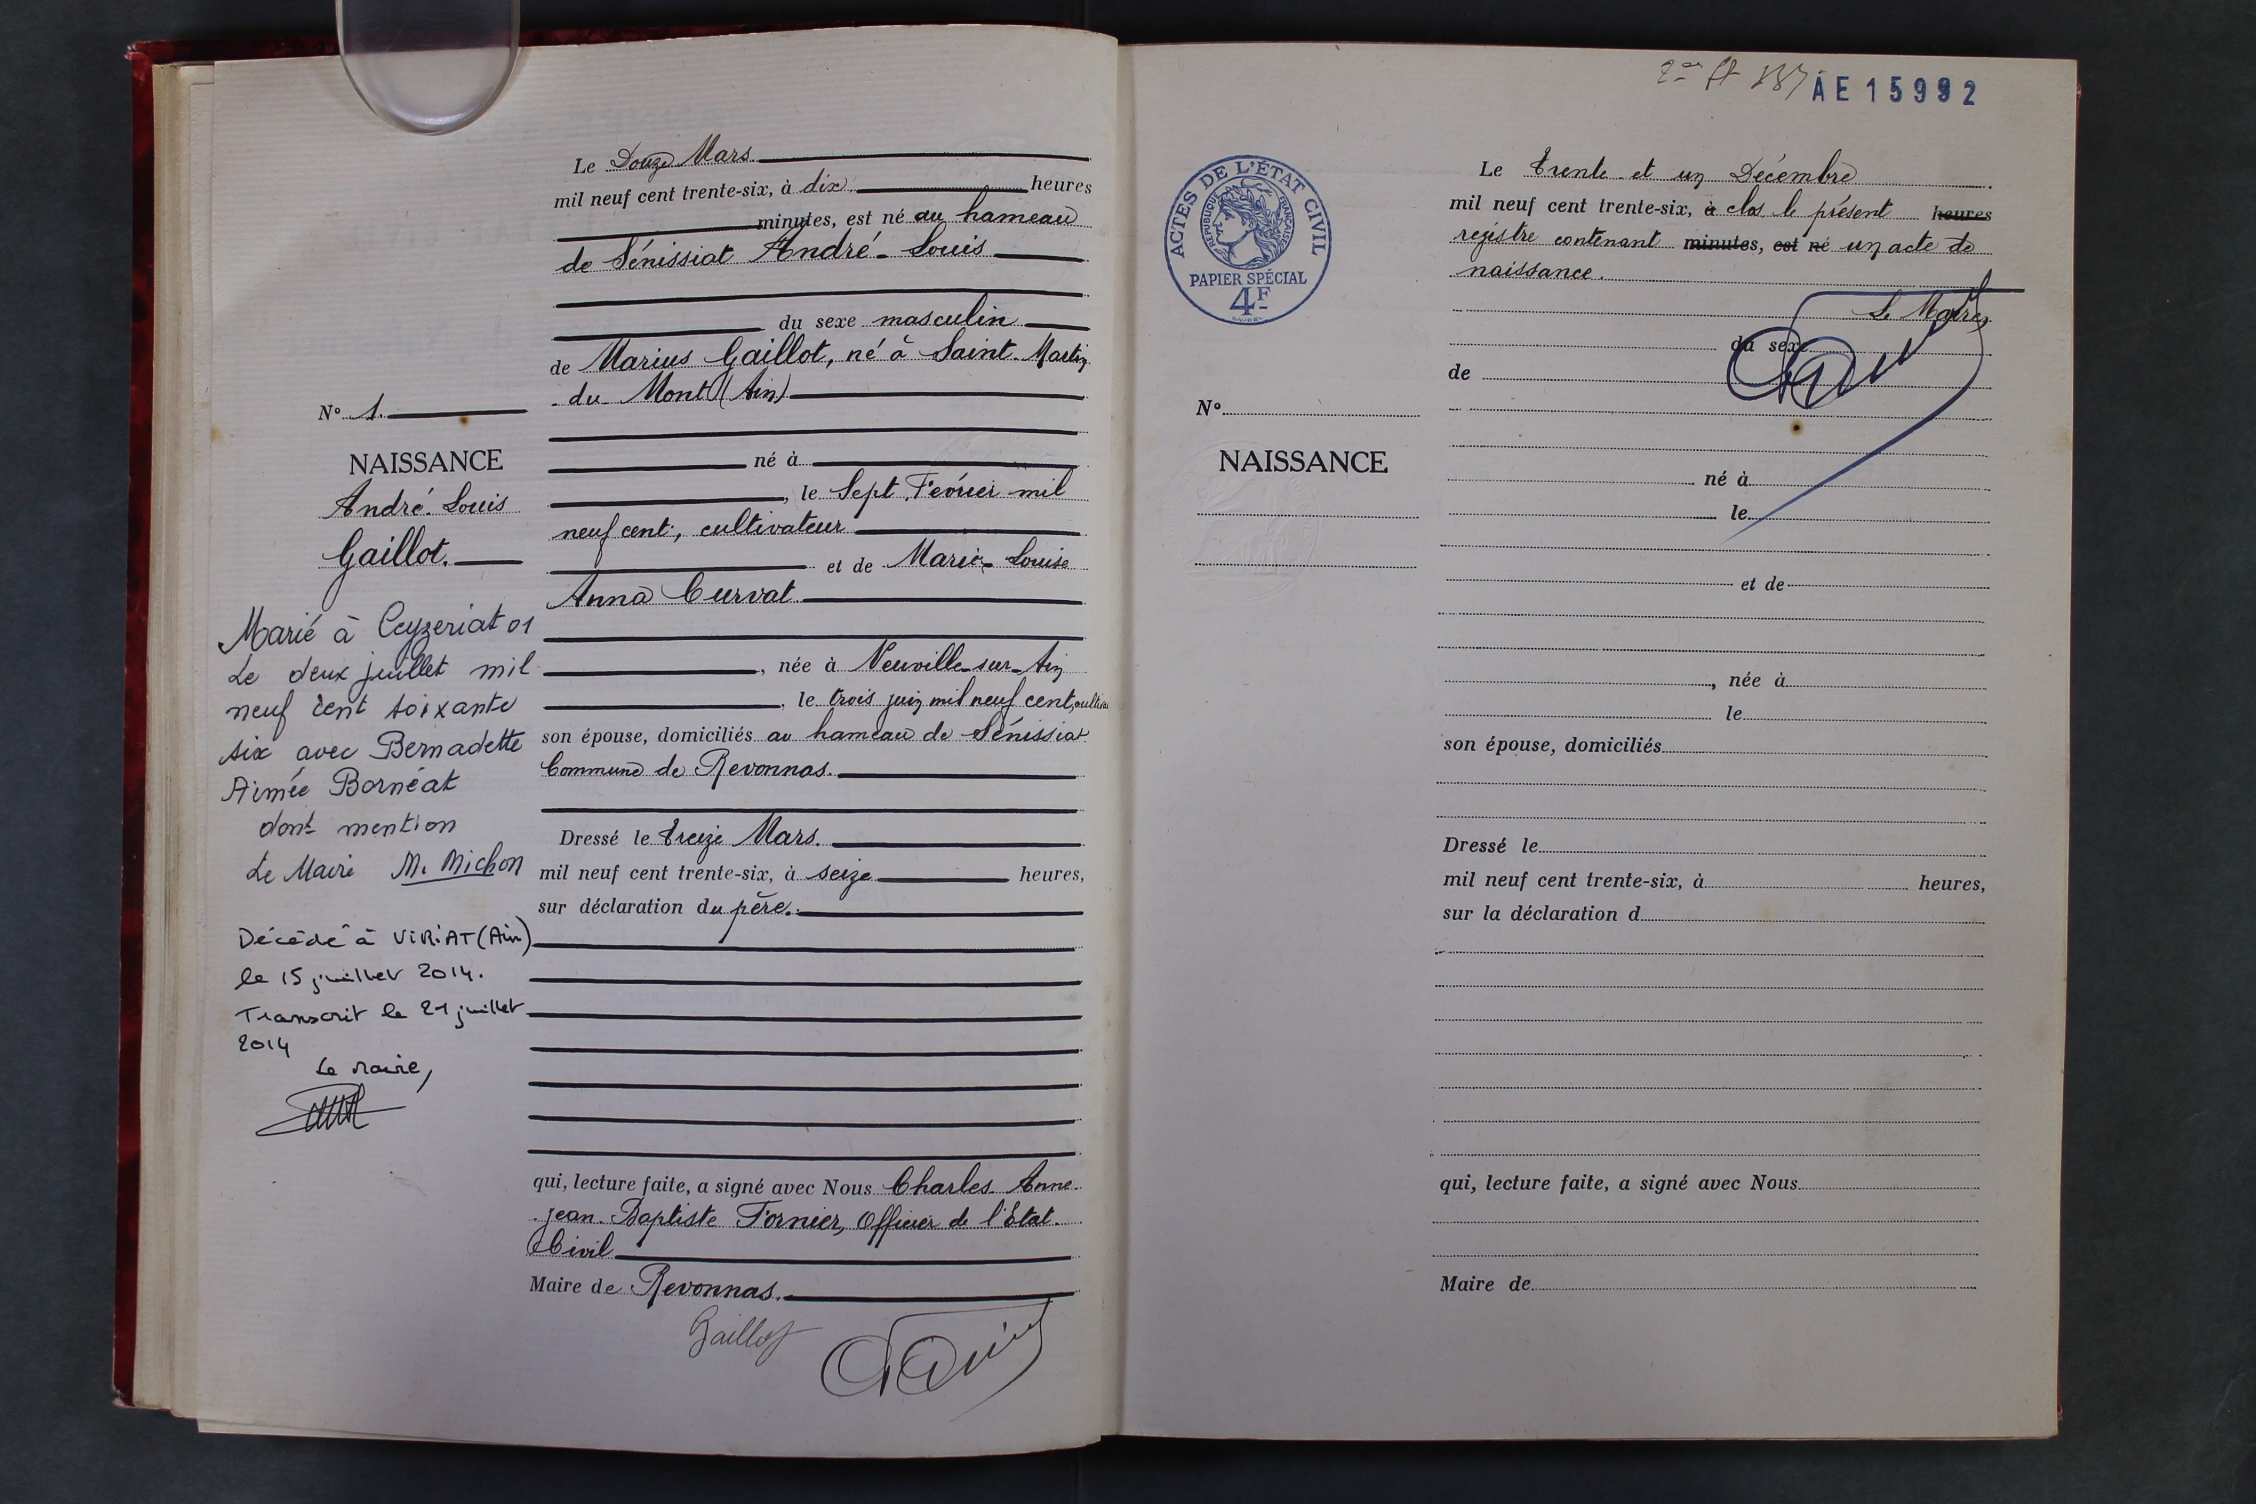 Le Douze Mars
mil neuf cent trente-six, à dix heures
minutes, est né au hameau
de Sénissiat André-Louis
du sexe masculin
de Marius Gaillot, né à Saint-Martin
du-Mont (Ain)
né à
, le Sept Février mil
neuf cent, cultivateur
et de Marie-Louise
Anna Curvat
, née à Neuville-sur-Ain
, le trois juin mil neuf cent,
son épouse, domiciliés au hameau de Sénissiat
Commune de Revonnas.
Dressé le treize Mars.
mil neuf cent trente-six, à seize heures,
sur déclaration du père.
qui, lecture faite, a signé avec Nous Charles Anne
Jean-Baptiste Fornier, Officier de l'Etat
Civil
Maire de Revonnas.
Gaillot
N° 1.
NAISSANCE
André-Louis
Gaillot.
Marié à Ceyzeriat 01
Le deux juillet mil
neuf cent soixante
six avec Bernadette
Aimée Bornéat
dont mention
Le Maire M. Michon
Décédé à VIRIAT (Ain)
le 15 juillet 2014.
Transcrit le 21 juillet
2014
Le Maire,
AE 15992
ACTES DE L'ÉTAT CIVIL
RÉPUBLIQUE FRANÇAISE
PAPIER SPÉCIAL
4F
N°
NAISSANCE
Le trente et un Décembre
mil neuf cent trente-six, à clos le présent heures
registre contenant minutes, est né un acte de
naissance.
Le Maire,
du sexe
de
né à
le
et de
, née à
le
son épouse, domiciliés
Dressé le
mil neuf cent trente-six, à heures,
sur la déclaration d
qui, lecture faite, a signé avec Nous
Maire de